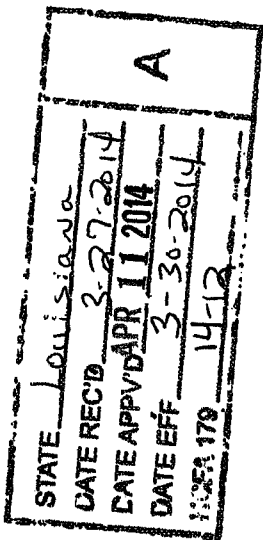 STATE Louisiana
DATE REC'D 3-27-2014
DATE APPV'D APR 11 2014
DATE EFF 3-30-2014
HCFA 179 14-12
A